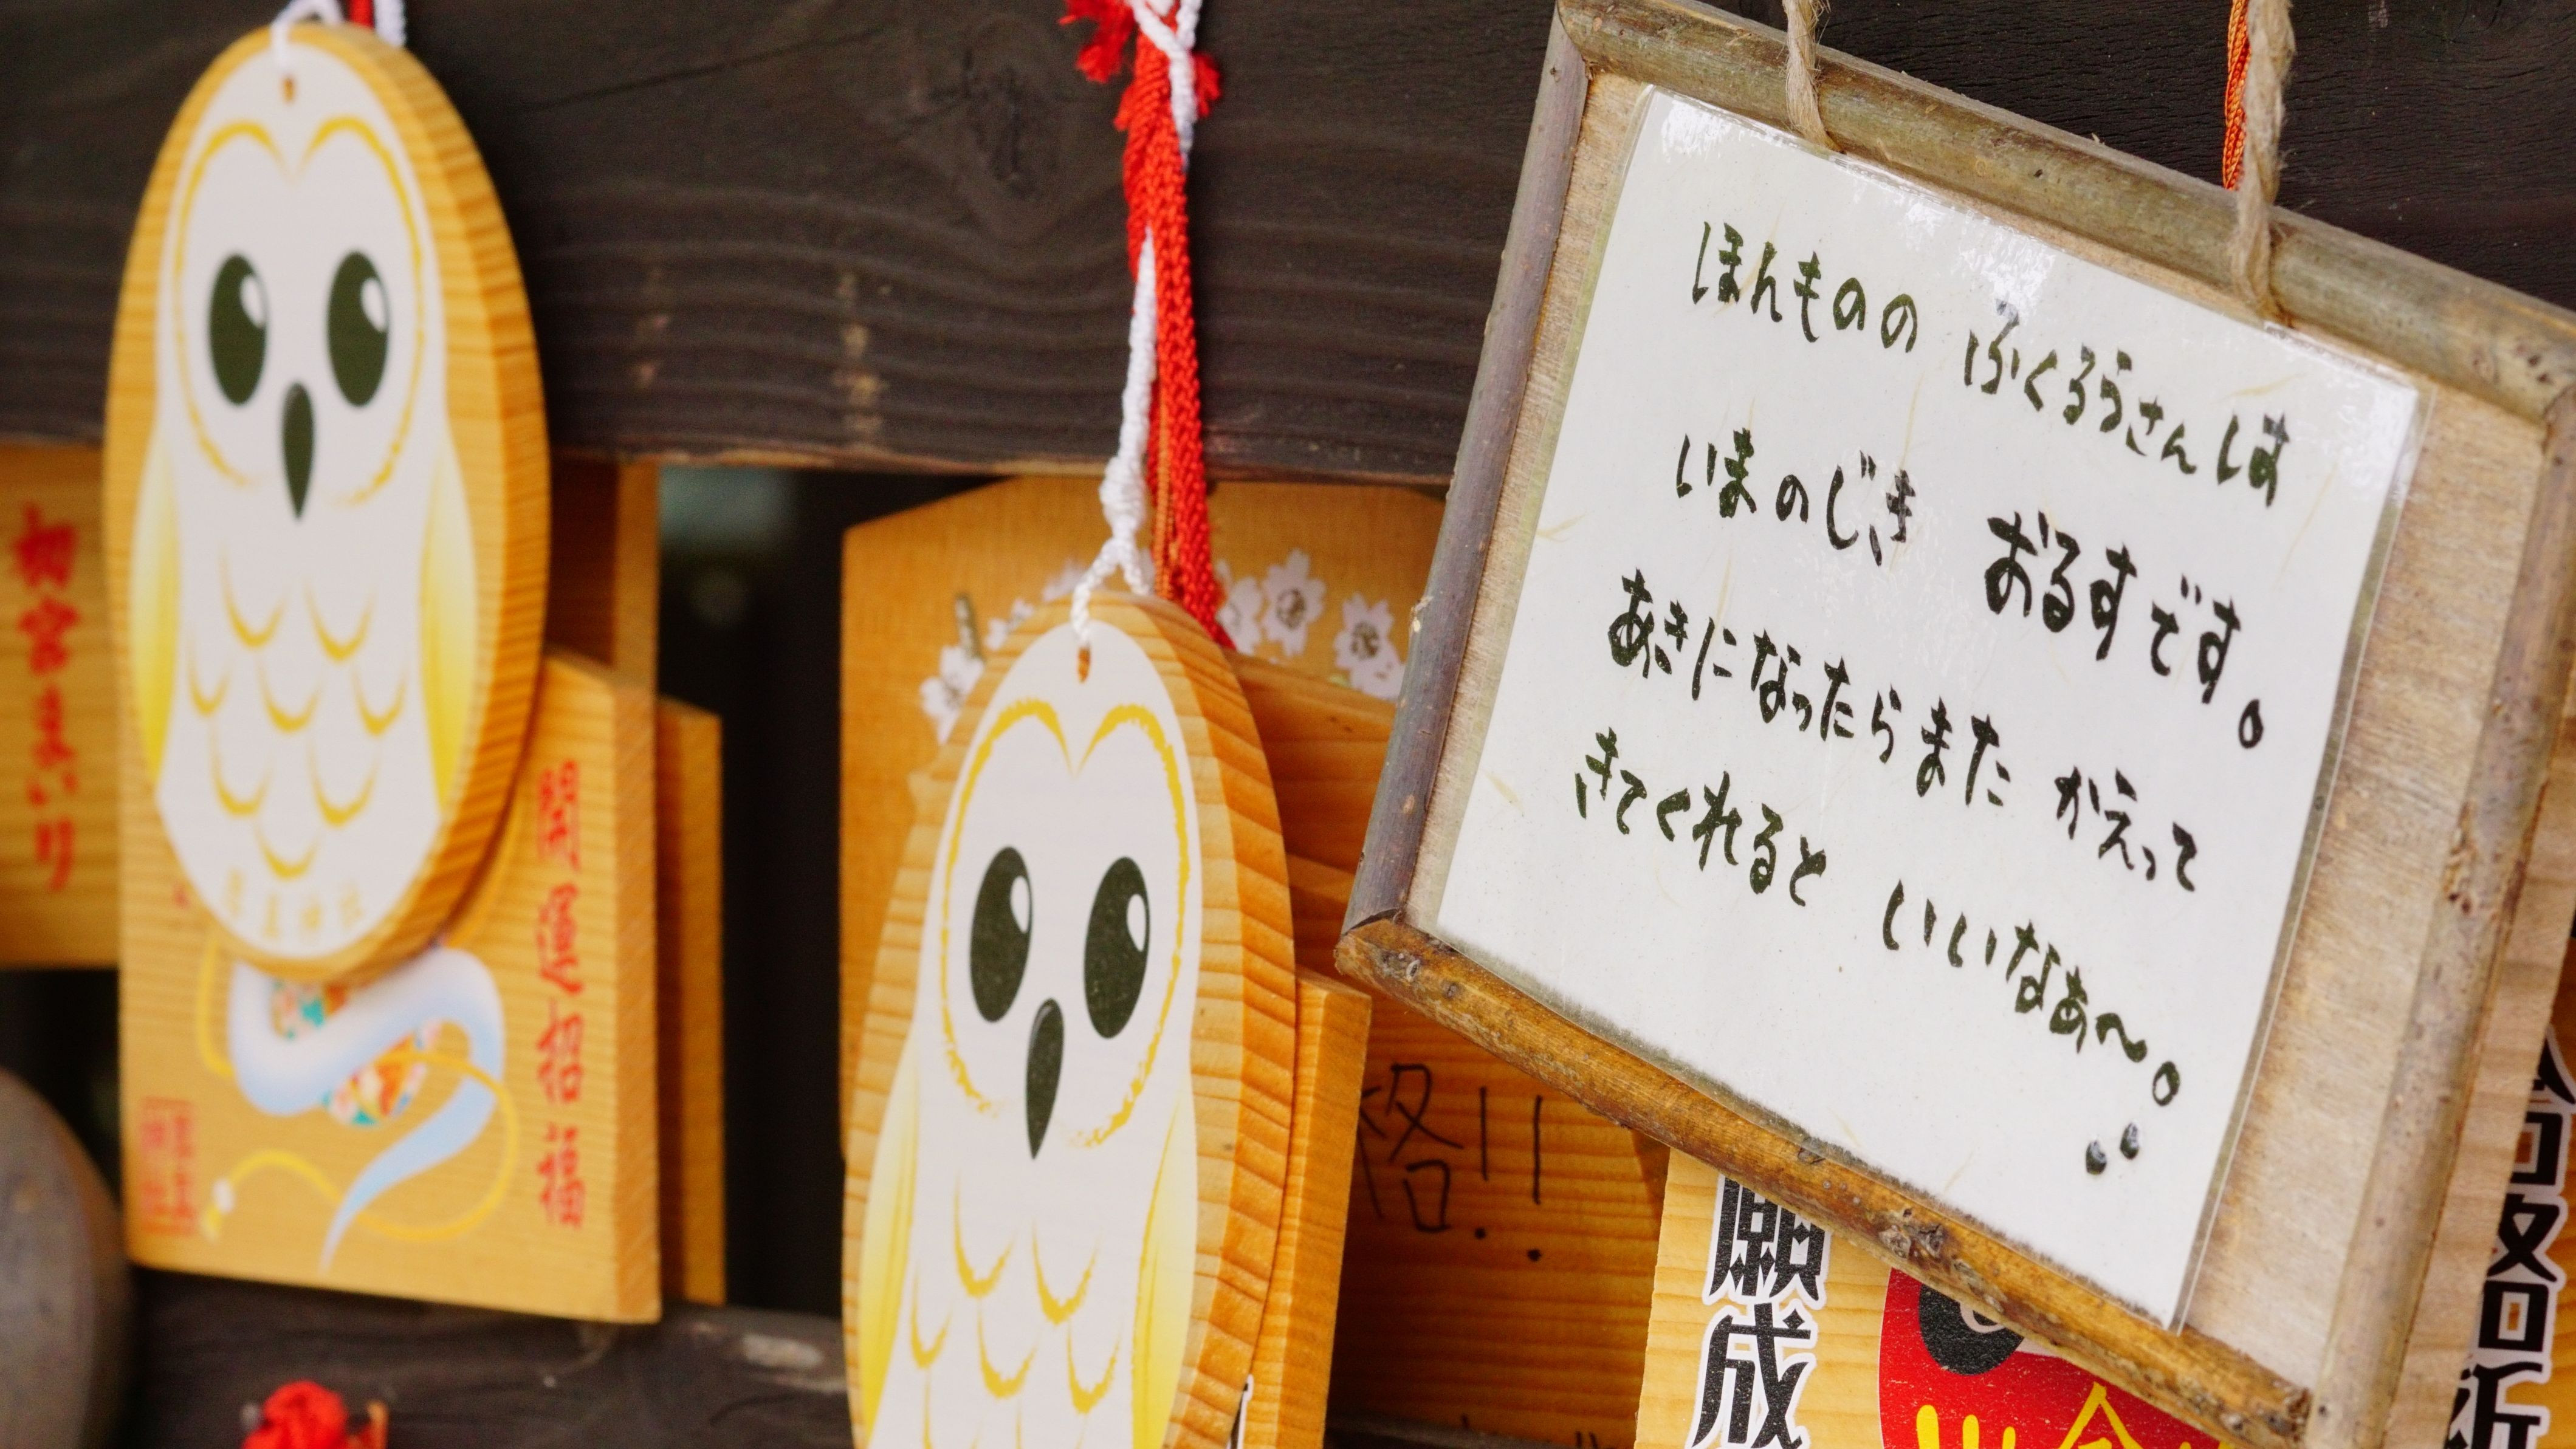 初宮まいり
開運招福
ほんものの ふくろうさんは
いまのじき おるすです。
あきになったらまた かえって
きてくれると いいなぁ〜。
格!!
願成
合格祈